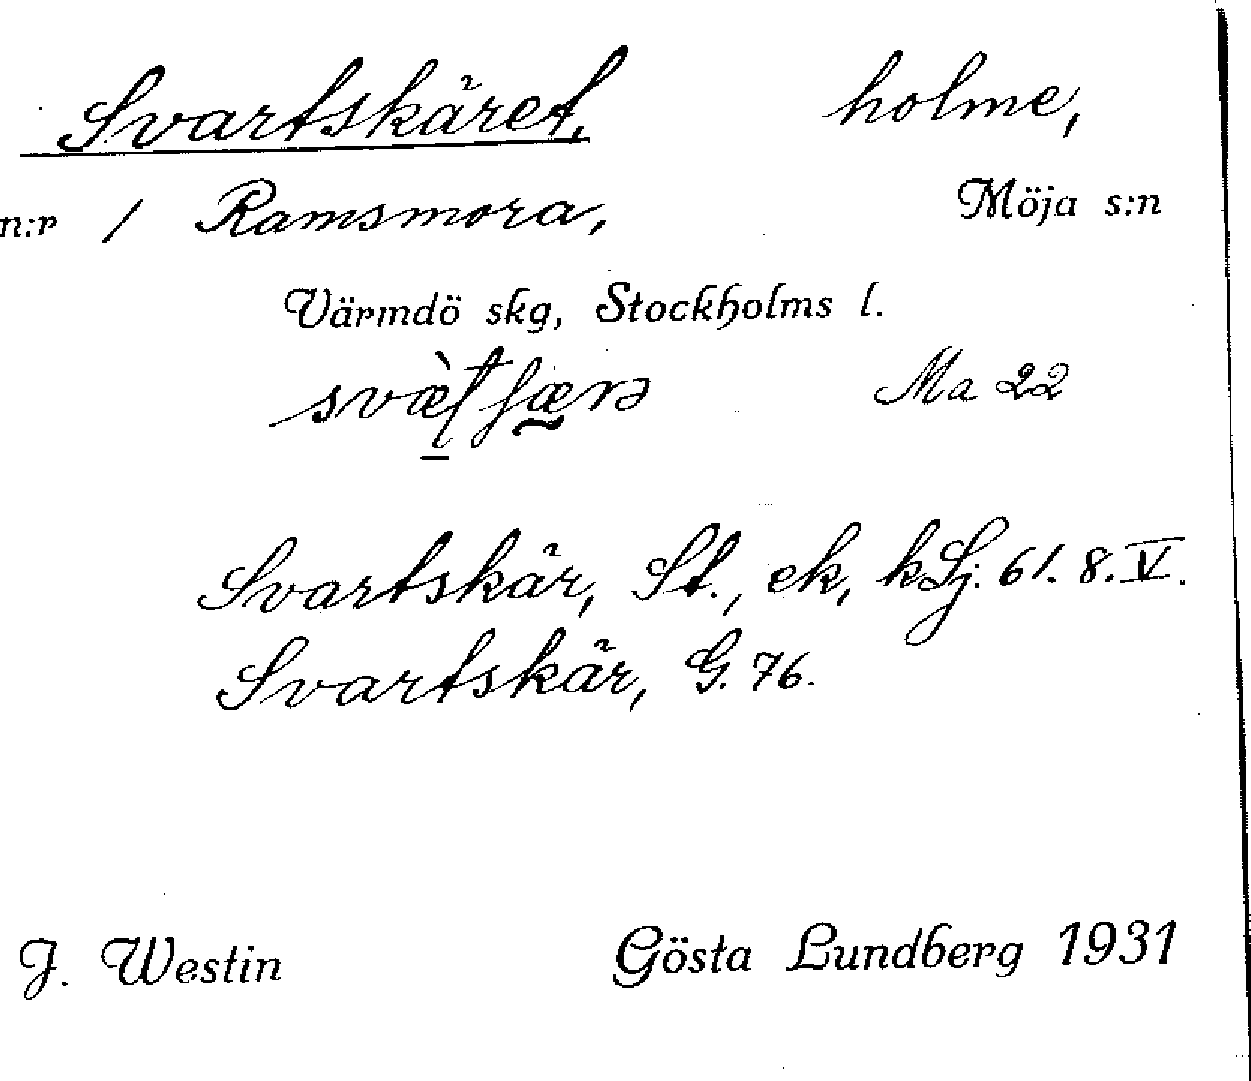 Svartskäret, holme,
n:r 1 Ramsmora, Möja s:n
Värmdö skg, Stockholms l.
Ma 22
Svartskär, St., ek, kSj. 61. 8. V.
Svartskär, G. 76.
J. Westin Gösta Lundberg 1931